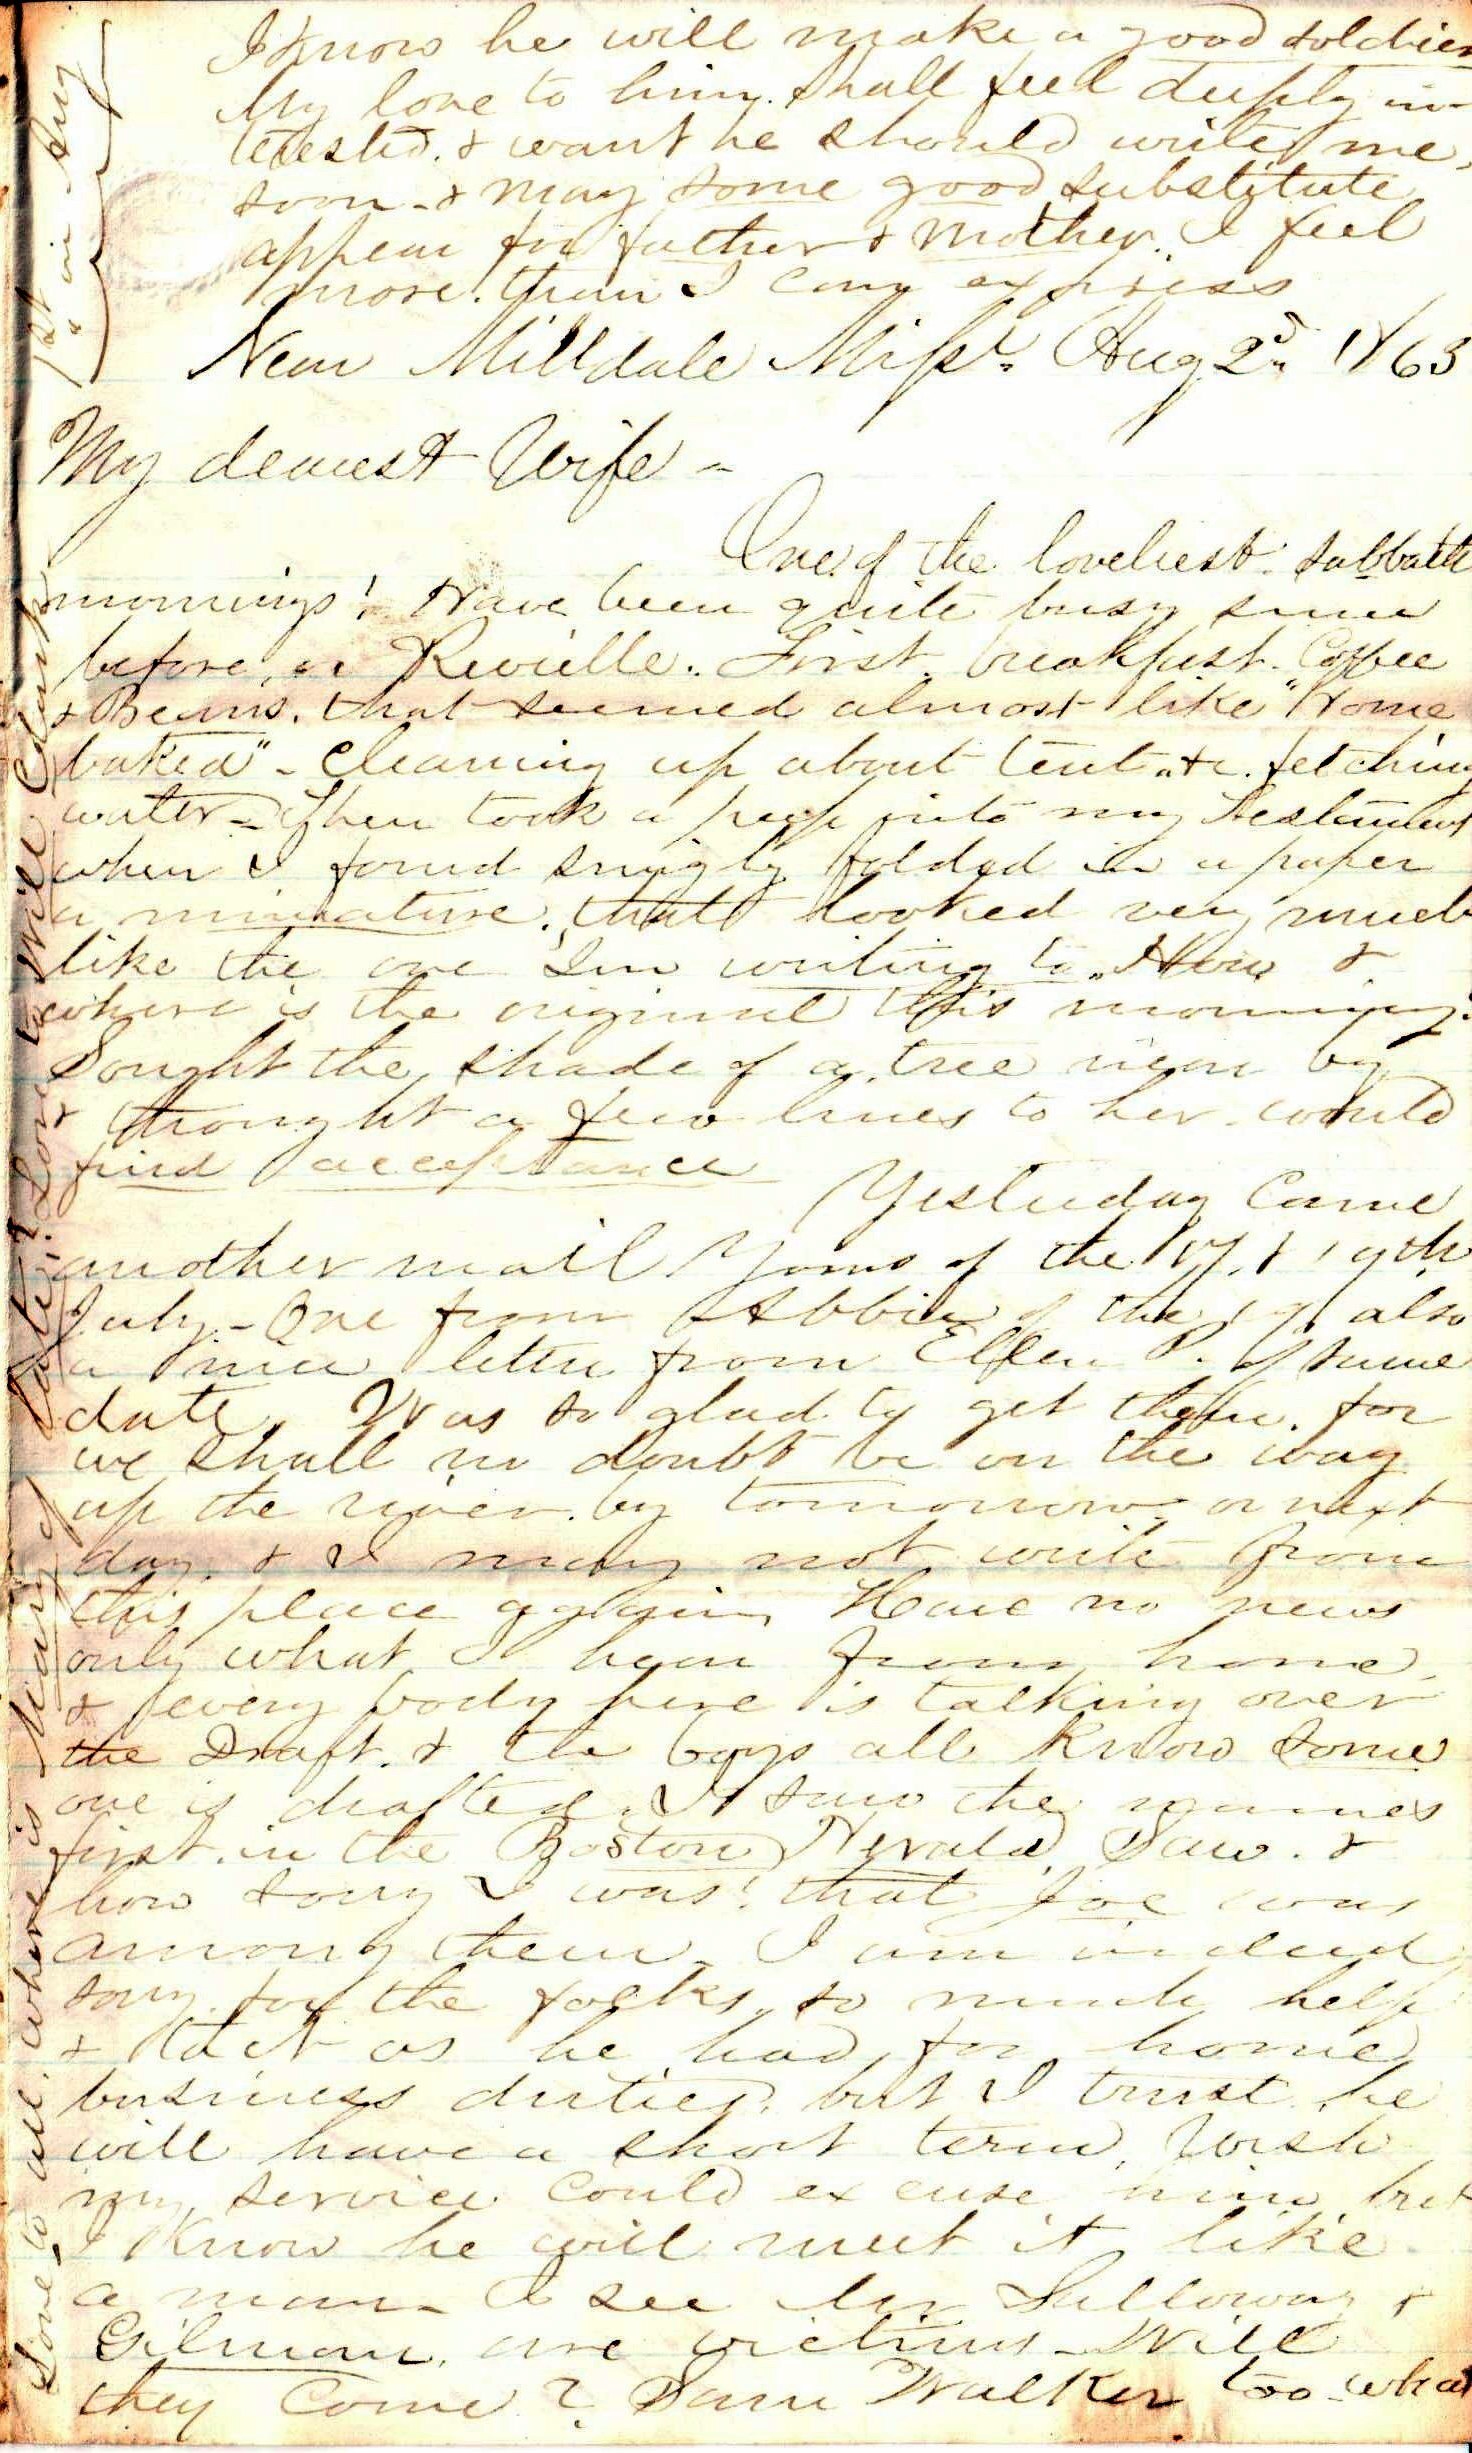 I know he will make a good soldier
My love to him. Shall feel deeply in-
terested. & want he should write me,
soon - & may some good substitute
appear for father & mother. I feel
more. than I can express
1st in Aug
Near Milldale Miss. Aug 2d 1863
My dearest Wife -
One of the loveliest sabbath
mornings! Have been quite busy since
before, Reveille. First. breakfast. Coffee
& Beans. that seemed almost like "Home
baked" - Cleaning up about tent &c. fetching
water - Then took a peep into my Testament
when I found snugly folded in a paper
a miniature. that looked very much
like the one Im writing to. How &
where is the original this morning.
Sought the shade of a tree near by
& thought a few lines to her would
find acceptance
Yesterday Came
another mail Yours of the 17. & 19th
July - One from Abbie of the 19 also
a nice letter from Ellen P. of same
date. Was so glad to get them. for
we shall no doubt be on the way
up the river. by tomorrow or next
day. & I may not write from
this place again, Have no news
only what I hear from home,
& every body here is talking over
the Draft. & the boys all know some
one is drafted. I saw the names
first. in the Boston Herald. Saw. &
how sorry I was! that Joe was
among them. I am indeed
sorry for the folks, so much help
& tact as he had for home
business duties. but I trust he
will have a short term, Wish
my service could excuse him but
I know he will meet it like
a man - I see Mr Salloway &
Gilman. are victims - Will
they Come? Sam Walker too - what
Love to all. where is Mary of
late? Love to Will Edmund